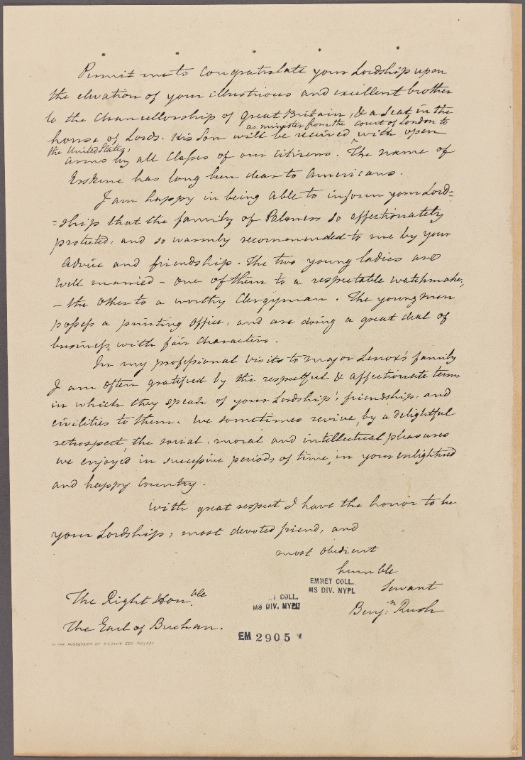 Permit me to congratulate your Lordship upon
the elevation of your illustrious and excellent brother
to the Chancellorship of Great Britain, & a seat in the
house of Lords. His Son will be received with open
as minister from the Court of London to
the United States,
arms by all Classes of our Citizens. The name of
Erskine has long been dear to Americans.
I am happy in being able to inform your Lord=
=ship that the family of Palmers so affectionately
protected, and so warmly recommended to me by your
advice and friendship. The two young ladies are
well married - one of them to a respectable watchmaker,
- the other to a worthy Clergyman. The young men
possess a printing office, and are doing a great deal of
business with fair characters.
In my professional visits to major Lenox's family
I am often gratified by the respectful & affectionate terms
in which they speak of your Lordship's friendship, and
civilities to them. We sometimes revive by a delightful
retrospect, the social, moral and intellectual pleasures
we enjoyed in successive periods of time, in your enlightened
and happy Country.
With great respect I have the honor to be
your Lordship's most devoted friend, and
most obedient
humble
Servant
Benjn Rush
The Right Honble
The Earl of Buchan.
EMMET COLL.
MS DIV. NYPL
COLL.
MS DIV. NYPL
EM 2905